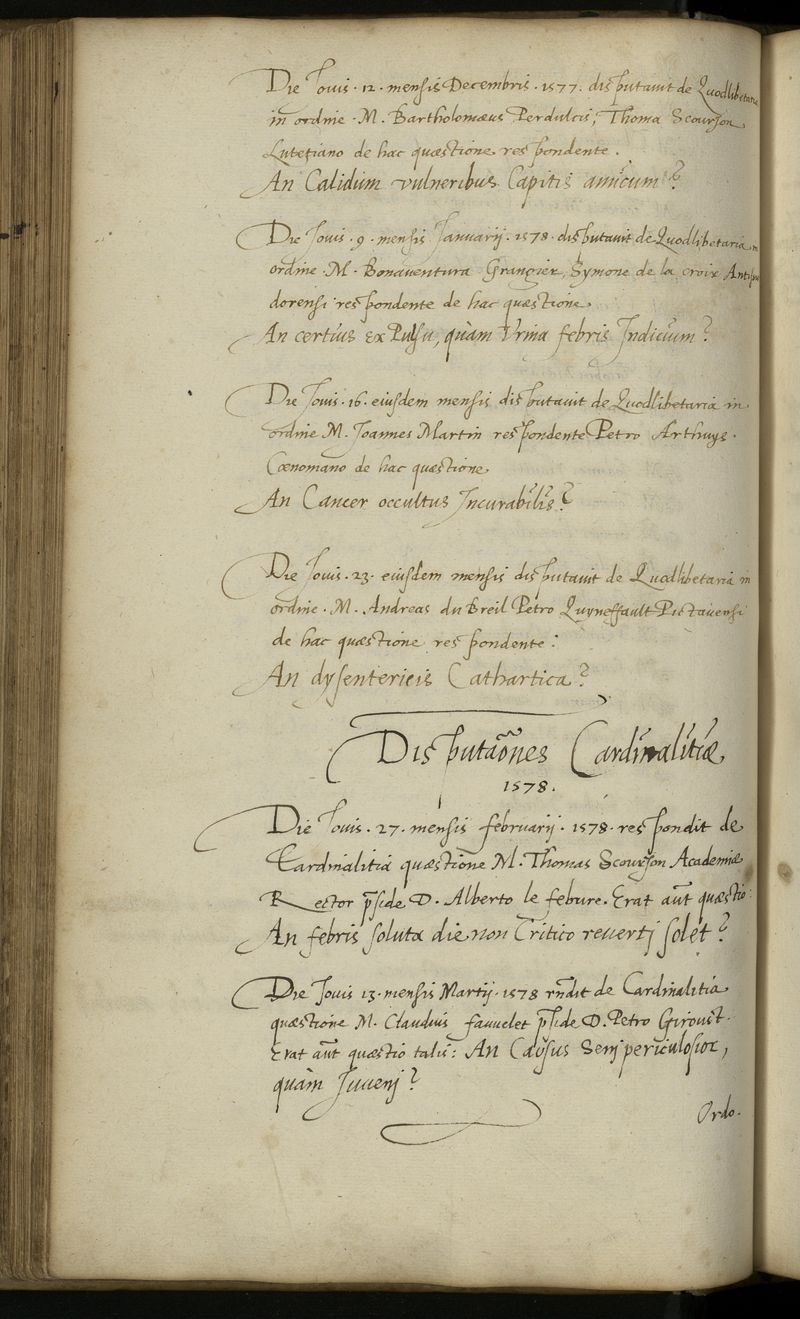 Die Jouis · 12 · mensis Decembris · 1577 · disputauit de Quodlibetaria
in ordine · M · Bartholomæus Perdulcis, Thoma Scourjon
Lutetiano de hac quæstione respondente .
An Calidum vulneribus Capitis amicum ?
Die Jouis · 9 · mensis Januarij · 1578 · disputauit de Quodlibetaria in
ordine · M · Bonaventura Grangier, Symone de la croix
dorensi respondente de hac quæstione
An certius ex Pulsu, quàm Vrina febris Indicium ?
Die Jouis · 16 · eiusdem mensis disputauit de Quodlibetaria in
ordine M. Joannes Martin respondente Petro Arthuys ·
Cœnomano de hac quæstione
An Cancer occultus Incurabilis ?
Die Jouis · 23 · eiusdem mensis disputauit de Quodlibetaria in
ordine · M · Andreas du Breil Petro Quyneffault Pictauensi
de hac quæstione respondente :
An dysentericis Cathartica ?
Disputaões Cardinalitiæ
1578 .
Die Jouis · 27 · mensis februarij · 1578 · respondit de
Cardinalitia quæstione M. Thomas Scourjon Academiæ
Rector p̃side D. Alberto le febure. Erat aũt quæstio :
An febris soluta die non Critico reuerti solet ?
Die Jouis 13 · mensis Martij · 1578 rñdit de Cardinalitia
quæstione M. Claudius fauuelet p̃side D. Petro Giroust ·
Erat aũt quæstio talis : An Causus Seni periculosior,
quàm Juueni ?
Ordo ·